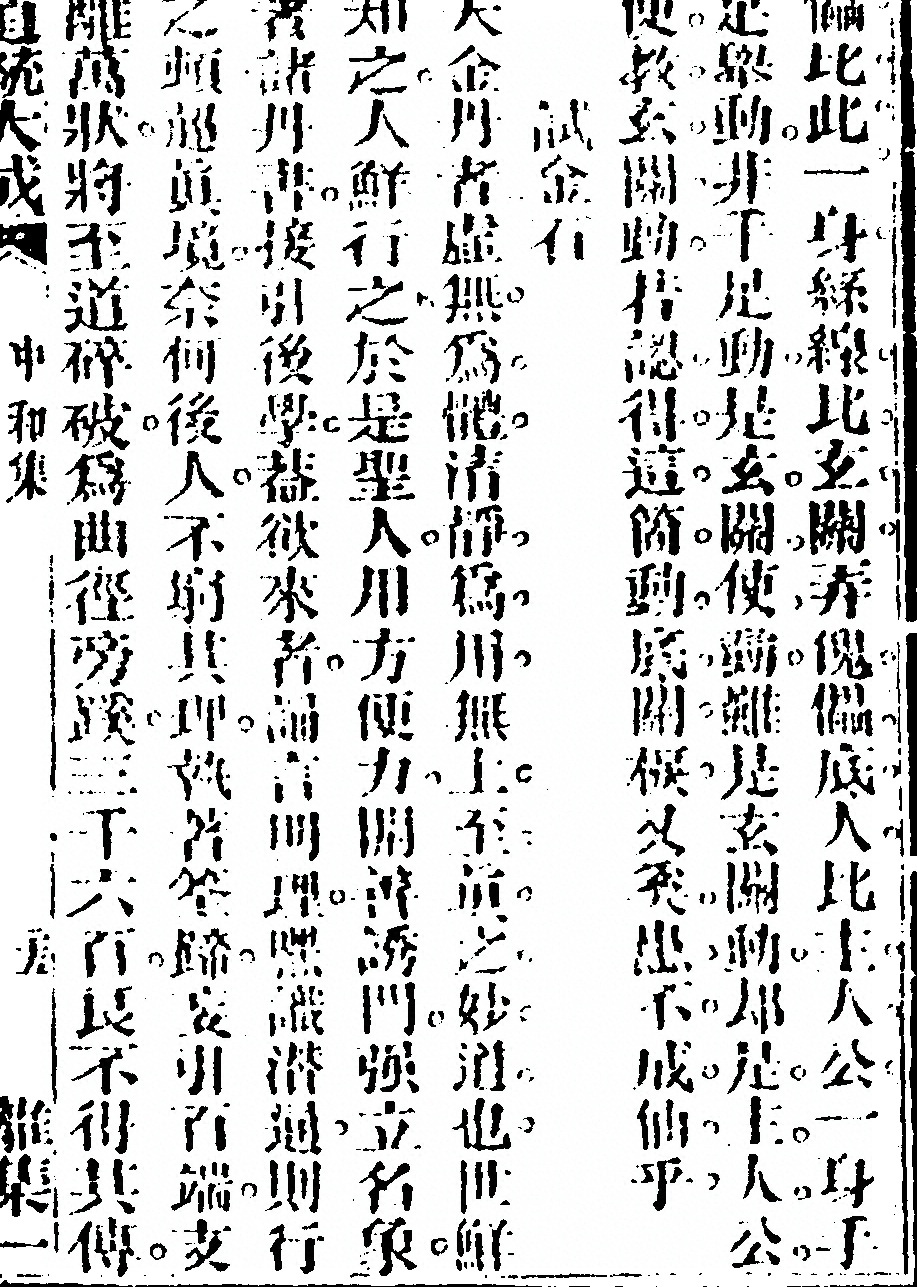 儡比此一身絲線比玄關弄傀儡底人比主人公一身手
足舉動非手足動是玄關使動雖是玄關動却是主人公
使教玄關動若認得這箇動底關候又奚患不成仙乎
試金石
夫金丹者虛無爲體淸靜爲用無上至眞之妙道也世鮮
知之人鮮行之於是聖人用方便力開善誘門强立名象
著諸丹書接引後學葢欲來者誦言明理嘿識潛通則行
之頓超眞境奈何後人不窮其理執著筌蹄妄引百端支
離萬狀將至道碎破爲曲徑旁蹊三千六百良不得其傳
道統大成 中和集 雜集一